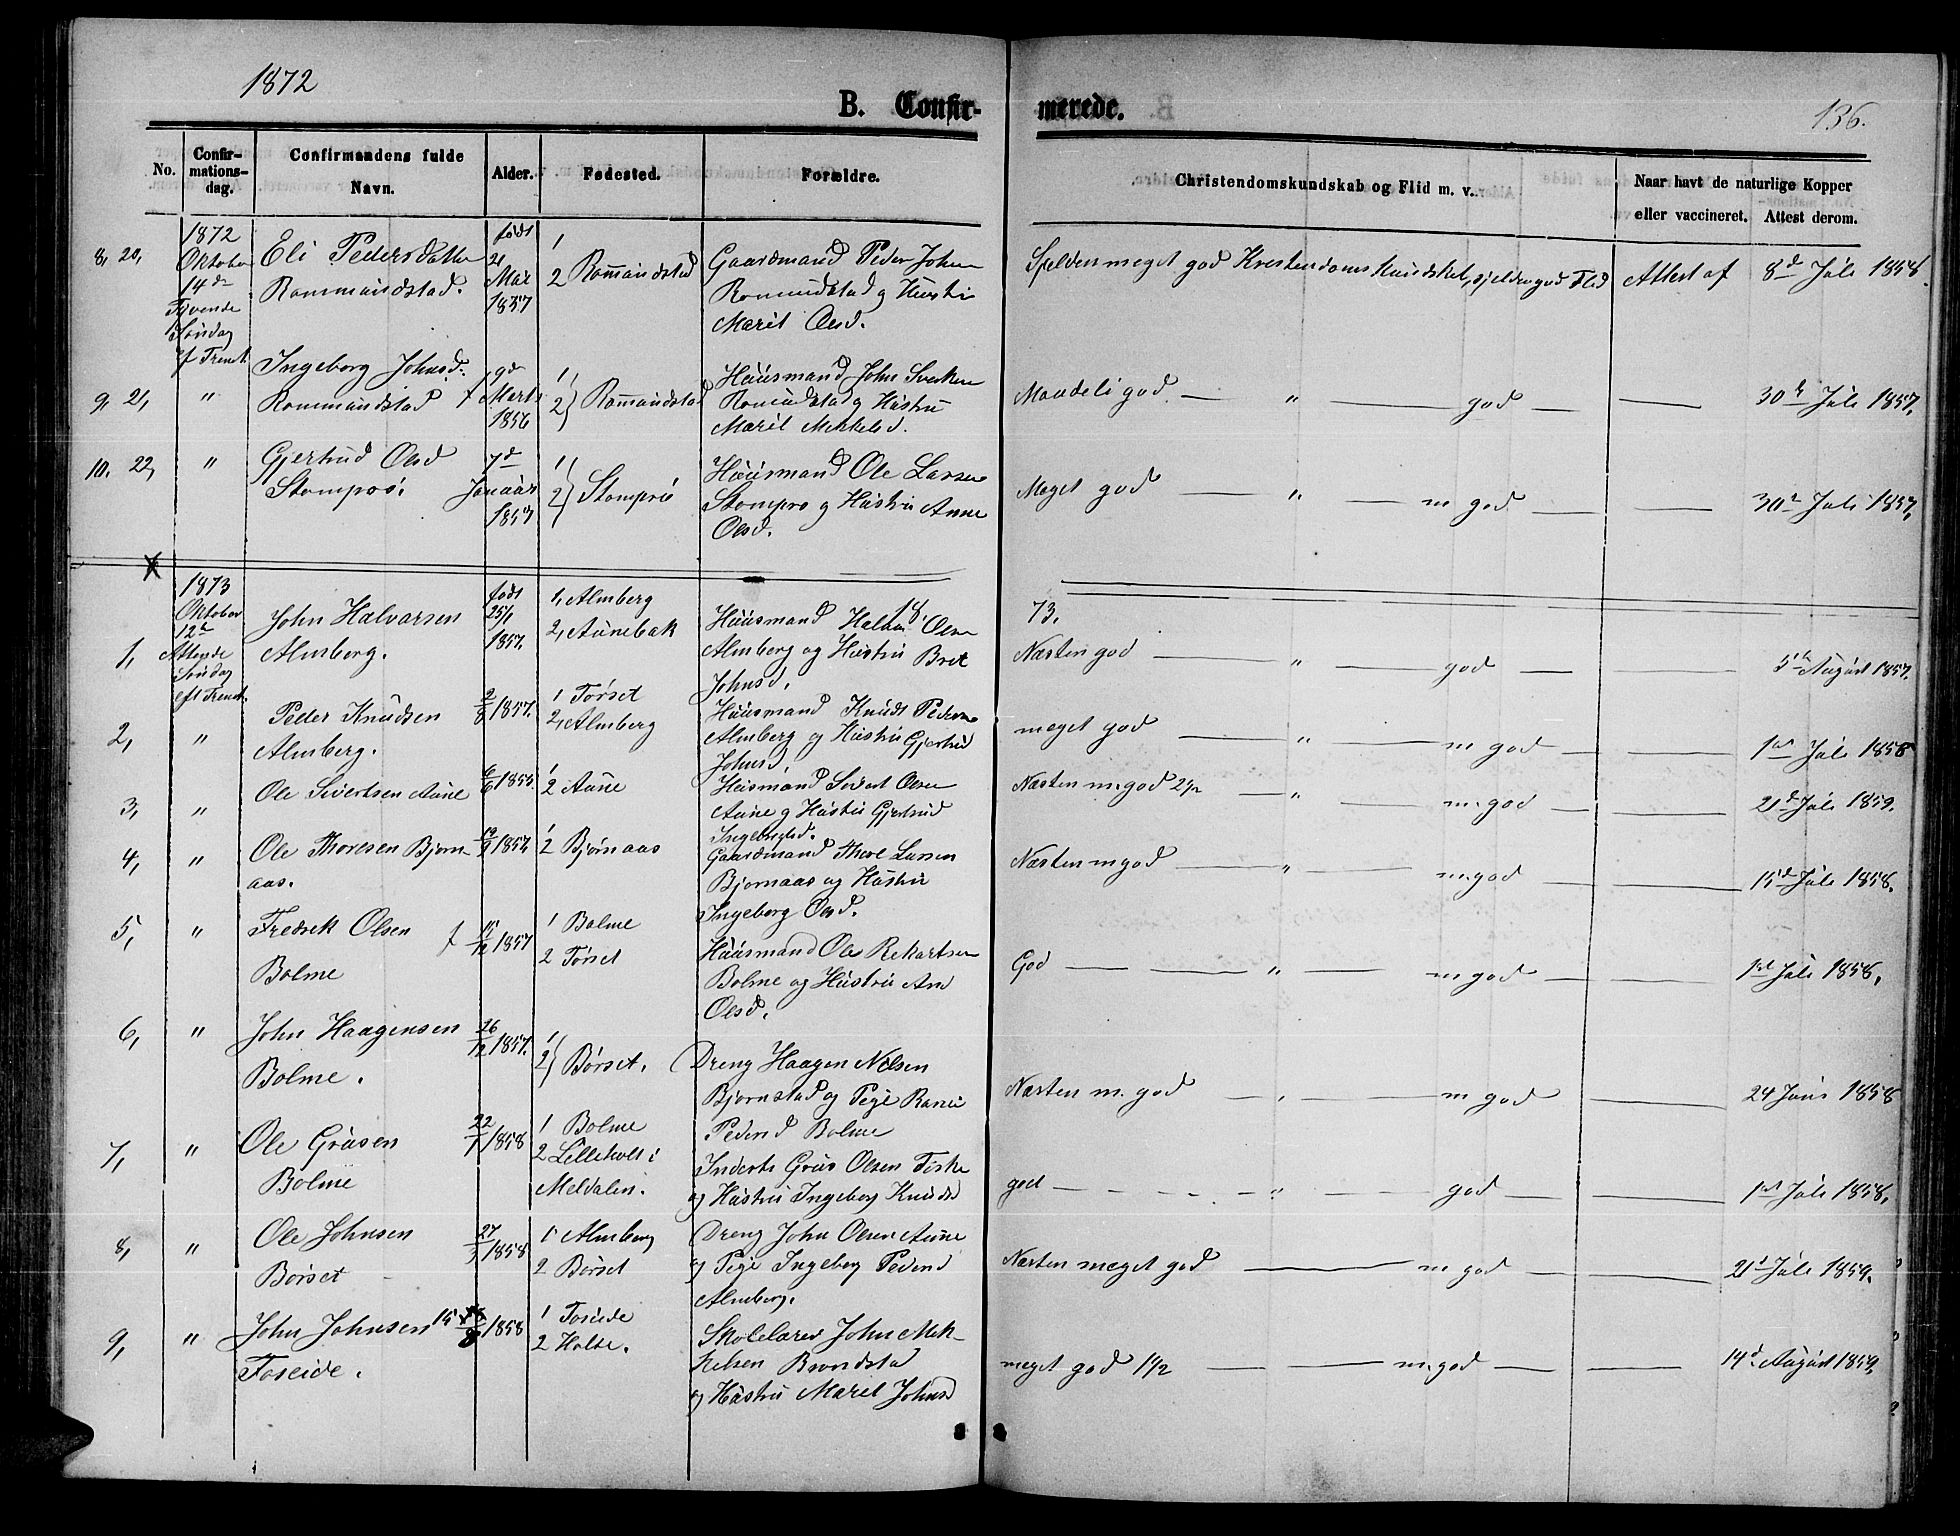 1872
B. Confir-
merede.
136.
No.
Confir-
mations-
dag.
Confirmandens fulde
Navn.
Alder.
Fødested.
Forældre.
Christendomskundskab og Flid m. v.
Naar havt de naturlige Kopper
eller vaccineret. Attest derom.
8, 20,
1872
Oktober
14de
Tyvende
Søndag
ef Trenit.
Eli Pedersdatter
Rommundstad.
født
21
Mai
1857
1
2 Rommundstad
Gaardmand Peder John
Romundstad og Hustri
Marit Olsd.
Sjelden meget god Kristendoms Kundskab, sjelden god Flid
Attest af
8d Juli 1858.
9, 21,
"
Ingeborg Johnsd.
Rommundstad
Marts
1856
1,
2} Romundstad
Huusmand John Sverken
Romundstad og Hustru
Marit Mikkelsd.
Maadeli god. — " — god —
30te Juli 1857.
10. 22,
"
Gjertrud Olsd
Stomprø.
7d
Januar
1857
1,
2} Stomprø
Huusmand Ole Larsen
Stompro og Hustru Anne
Olsd.
Meget god — " — m god —
30d Juli 1857,
1873
Oktober
12te
Attende
Søndag
eft Trenit.
18
73.
1,
John Halvarsen
Almberg.
født
25/1
1857.
1, Almberg
2, Aunebak
Huusmand Halvar Olsen
Almberg og Hustru Bret
Johnsd,
Næsten god — " — god —
5te August 1857.
2,
"
Peder Knudsen
Almberg.
2/8 1857.
1 Tørset
2, Almberg
Huusmand Knudt Pedersen
Almberg og Hustru Gjertrud
Johnsd,
meget god — " — m god —
1st Juli 1858
3,
"
Ole Sivertsen Aune
6/6 1855.
1
2 Aune
Huusmand Sivert Olsen
Aune og Hustru Gjertrud
Ingebrigtsd.
Næsten m. god 2½ — " — m. god —
21d Juli 1859.
4,
"
Ole Thoresen Bjørn-
aas.
19/9 1857,
1
2 Bjørnaas
Gaardmand Thore Larsen
Bjornaas og Hustru
Ingeborg Olsd.
Næsten m god — " — m. god —
15d Juli 1858.
5,
"
Fredrek Olsen
Bolme
15/12 1857
1 Bolme
2 Tørset
Huusmand Ole Rekartsen
Bolme og Hustru Ane
Olsd.
God — " — m god —
1st Juli 1858,
6,
"
John Haagensen
Bolme.
26/12 1857.
1
2} Børset.
Dreng Haagen Nelsen
Bjørnstad og Pige Ranei
Pedersd Bolme
Næsten m. god — " — m god
24 Juni 1858
7,
"
Ole Gruusen
Bolme
22/1 1858
1 Bolme
2 Lilleholt i
Meldalen.
Inderst Gruus Olsen Fiske
og Hustru Ingeborg Knudsd
god — " — god —
1st Juli 1858,
8,
"
Ole Johnsen
Børset
27/3 1858
1 Almberg
2 Børset
Dreng John Olsen Aune
og Pige Ingebor Pedersd
Almberg.
Næsten meget god — m god —
21d Juli 1859.
9,
"
John Johnsen
Foseide.
15/8 1858
1 Foseide
2 Holte.
Skolelærer John Mek-
kelsen Brondstad
og Hustru Marit Johnsd
meget god 1½ — m. god —
14d August 1859,